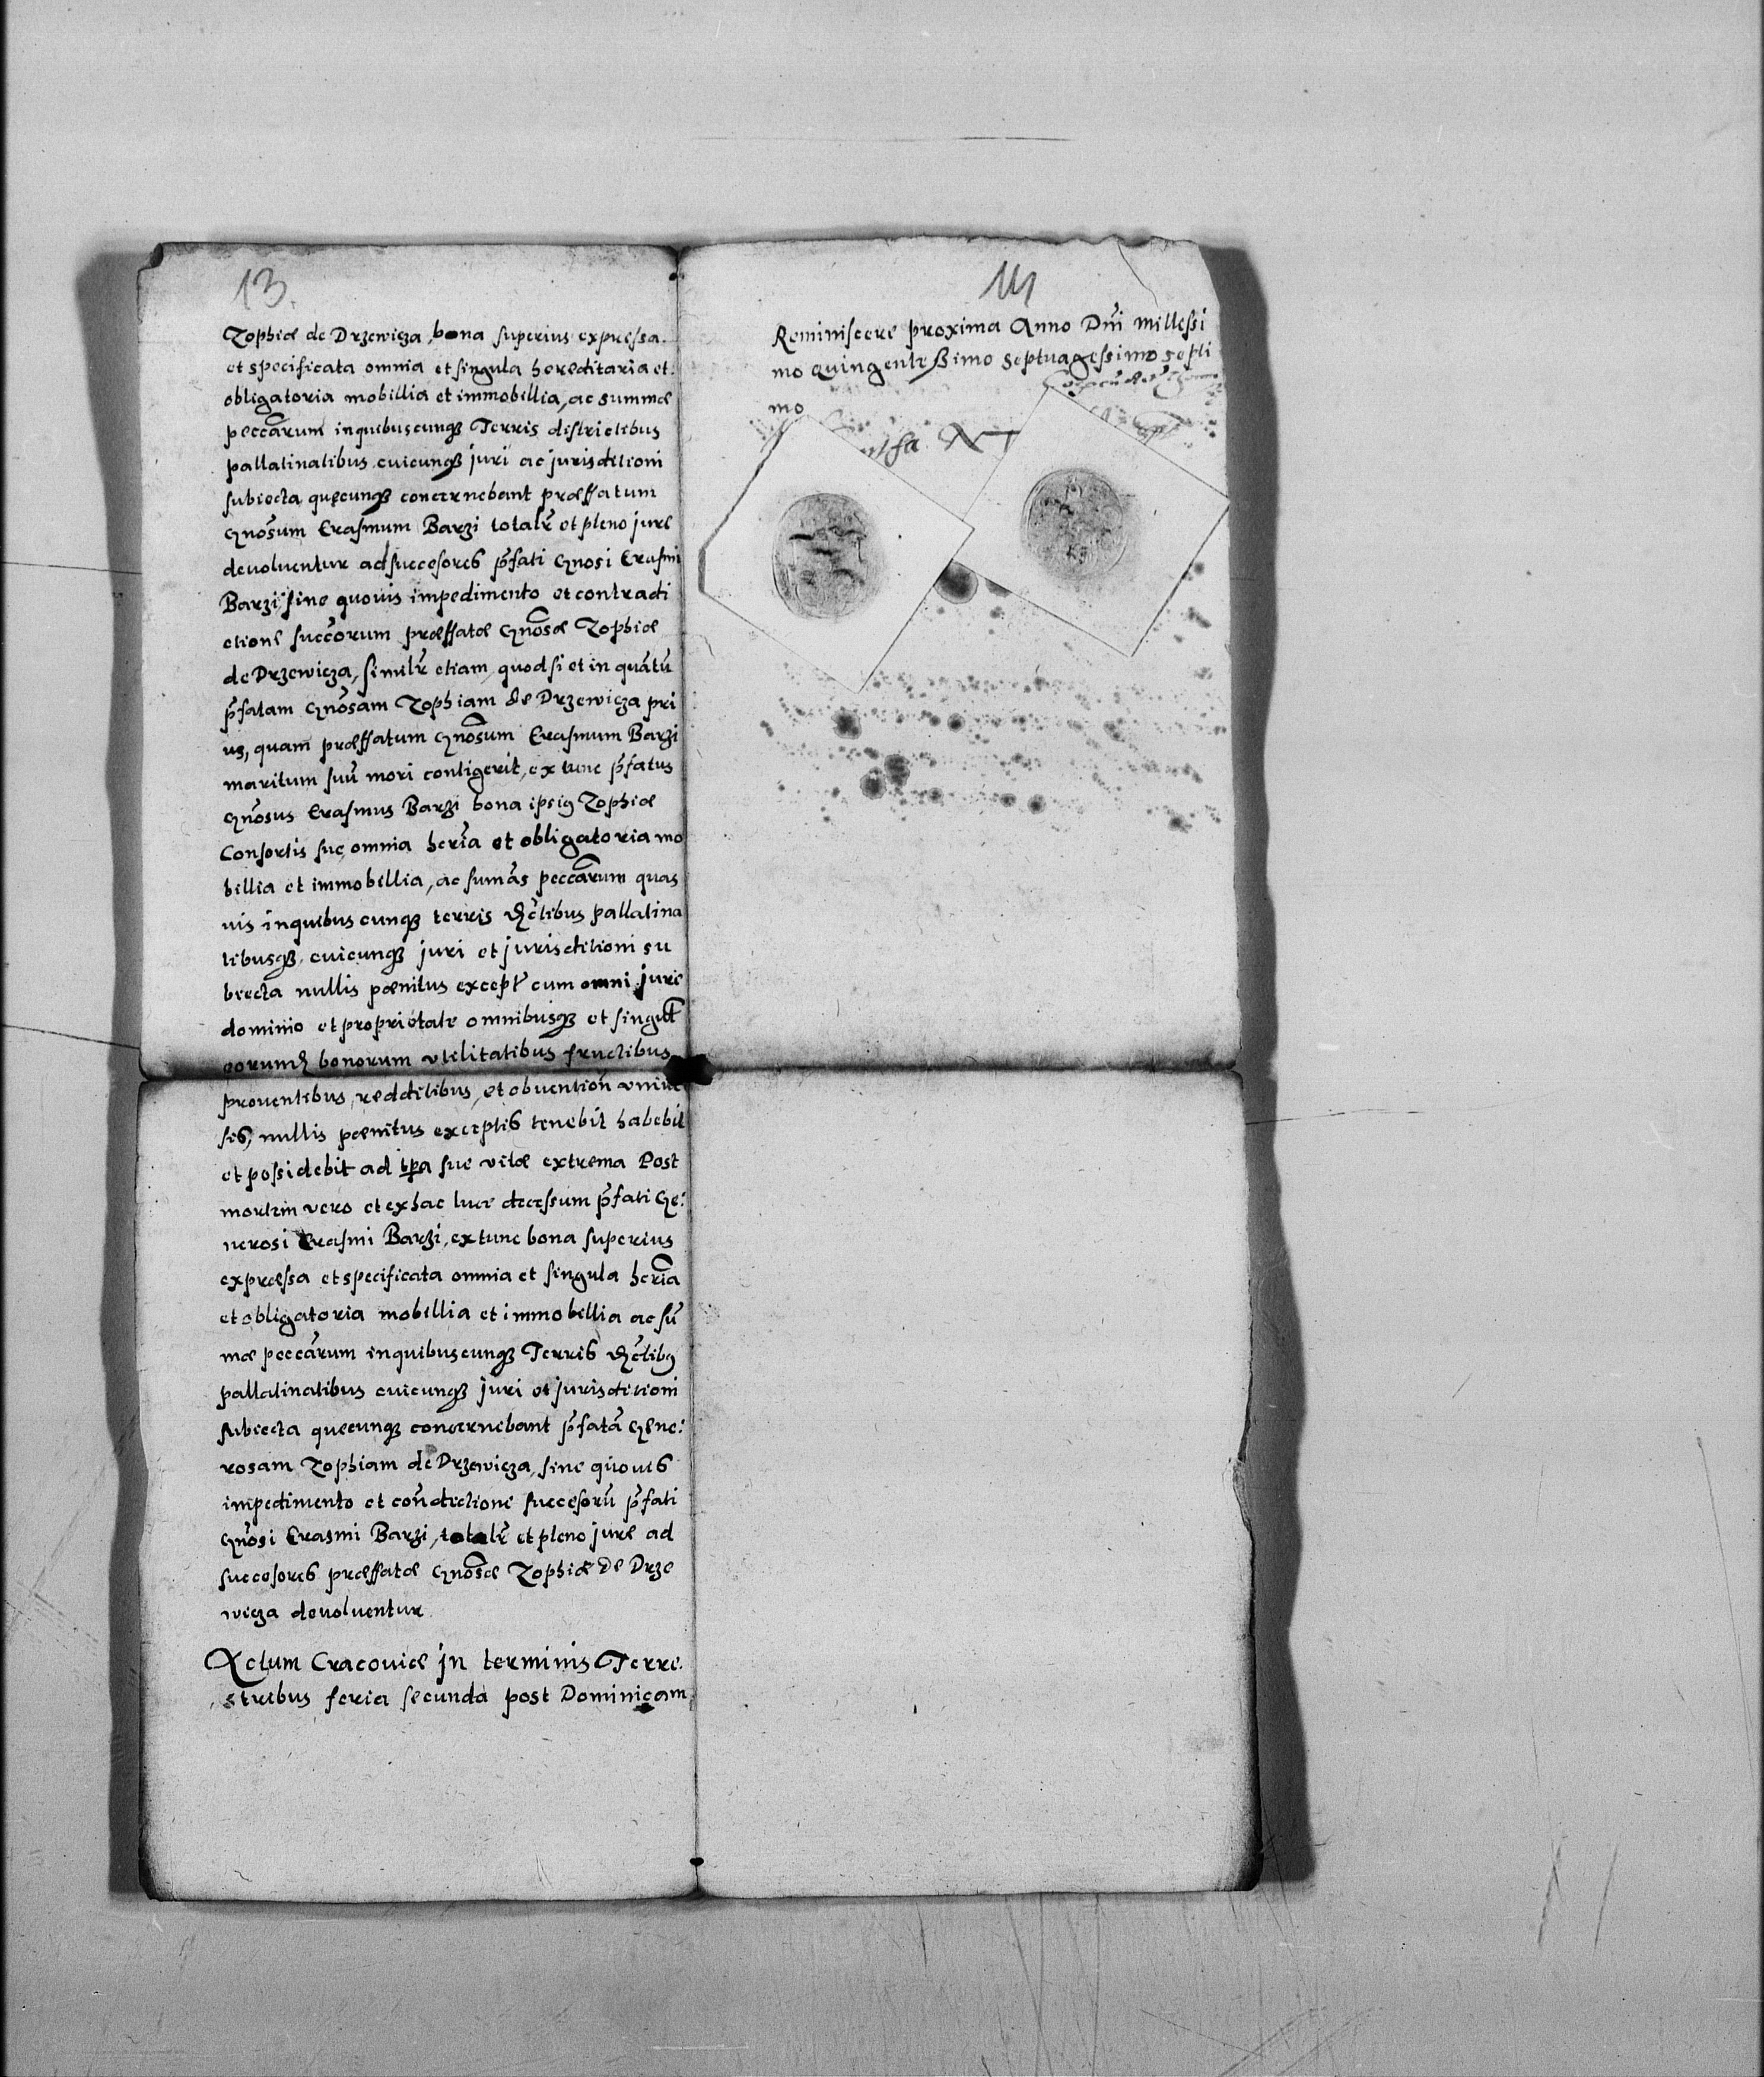 13.
Zophiæ de Drzewicza, bona superius expressa.
et specificata omnia et singula hereditaria et
obligatoria mobillia et immobillia, ac summæ
peccarum inquibuscunqȝ Terris districtibus
pallatinatibus cuicunqȝ juri ac jurisditioni
subiecta quęcunqȝ concernebant præffatum
Gnosum Erasmum Barzi totalr et pleno jure
devoluentur ad succesores pfati Gnosi Erasmi
Barzi sine quouis impedimento et contradi
ctione succorum præffatæ Gnosæ Zophiæ
de Drzewicza, similr etiam, quod si et in quatu
pfatam Gnosam Zophiam de Drzewicza pri
us, quam præffatum Gnosum Erasmum Barzi
maritum suu mori contigerit, ex tunc pfatus
Gnosus Erasmus Barzi bona ipsig Zophiæ
Consortis suę omnia heria et obligatoria mo
billia et immobillia, ac sumas peccarum quas
uis inquibus cunqȝ terris dictibus pallatina
tibusqȝ cuicunqȝ juri et jurisditioni su
biecta nullis pænitus except cum omni jure
dominio et proprietate omnibusqȝ et singul
eorumd bonorum vtilitatibus fructibus
prouentibus, redditibus, et obuention vniuer
sis, nullis pænitus exceptis tenebit habebit
et possidebit ad tpa sue vitæ extrema Post
mortem vero et ex hac luce decessum pfati Ge:
nerosi Erasmi Barzi, ex tunc bona superius
expressa et specificata omnia et singula heria
et obligatoria mobillia et immobillia ac su
mæ peccarum inquibuscunqȝ Terris dictibg
pallatinatibus cuicunqȝ juri et jurisditioni
subiecta quecunqȝ concernebant pfata Gene:
rosam Zophiam de Drzewicza, sine quouis
impedimento et condictione succesoru pfati
Gnosi Erasmi Barzi, totalr et pleno jure ad
succesores præffatæ Gnosæ Zophiæ de Drze
wicza deuoluentur.
Actum Cracouiæ jn terminis Terre.
stribus feria secunda post Dominicam
14
Reminiscere proxima Anno Dni millessi
mo quingentessimo septuagessimo septi
mo